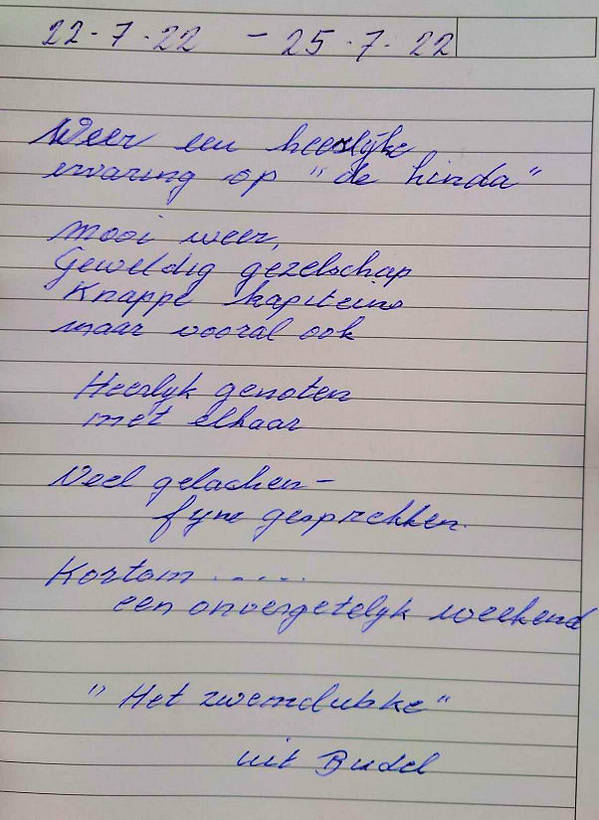 22-7-22 - 25.7.22
Weer een heerlijke
ervaring op "de hinda"
Mooi weer,
Geweldig gezelschap
Knappe kapiteins
maar vooral ook
Heerlyk genoten
met elkaar
Veel gelachen -
fyne gesprekken.
Kortom .....
een onvergetelyk weekend
"Het zwemclubke"
uit Budel